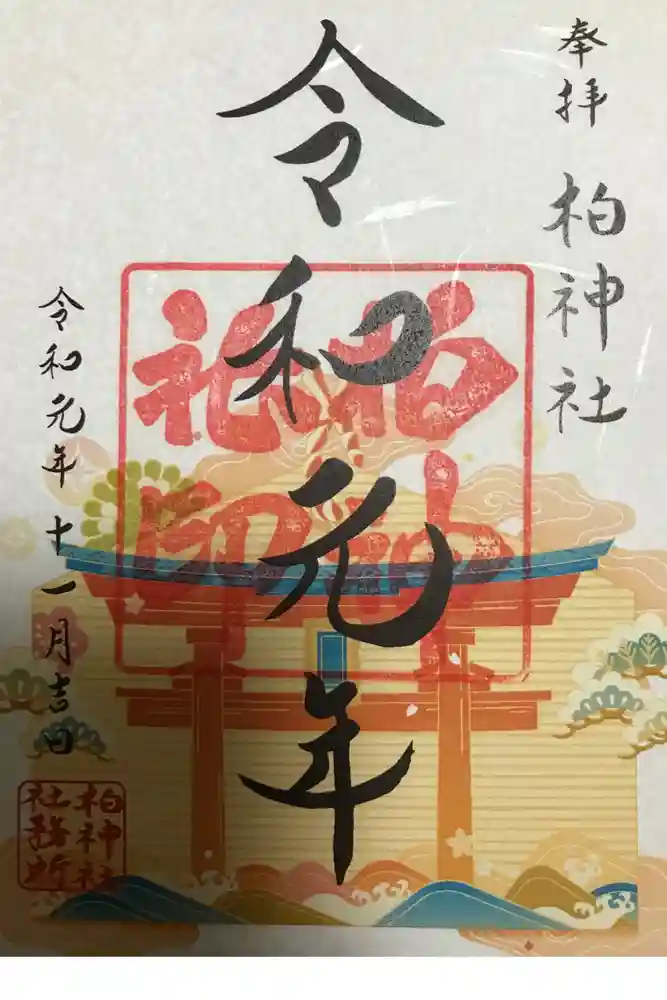 奉拝
柏神社
令和元年
令和元年十一月吉日
柏神
社印
柏神社
社務所